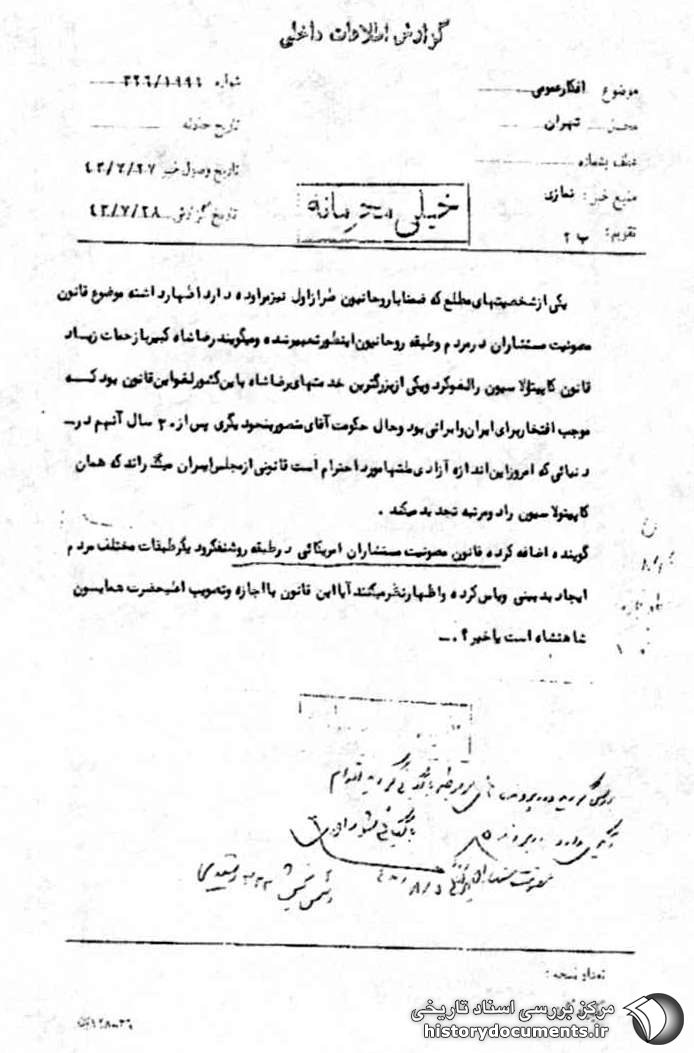 گزارش اطلاعات داخلی
موضوع افکارعمومی
شماره ۳۲۶/۱۹۹۶
محل تهران
تاریخ حادثه
عطف بشماره
تاریخ وصول خبر ۴۳/۷/۲۷
منبع خبر: نمازی
تاریخ گزارش ۴۳/۷/۲۸
تقویم: ب ۲
خیلی محرمانه
یکی از شخصیتهای مطلع که ضمنا با روحانیون طراز اول نیز مراوده دارد اظهار داشته موضوع قانون
مصونیت مستشاران در مردم و طبقه روحانیون اینطور تعبیر شده و میگویند رضا شاه کبیر با زحمات زیاد
قانون کاپیتولاسیون را لغو کرد و یکی از بزرگترین خدمتهای رضا شاه باین کشور لغو این قانون بود که
موجب افتخار برای ایران و ایرانی بود و حال حکومت آقای منصور بنحو دیگری پس از ۲۰ سال آنهم در
دنیائی که امروز این اندازه آزادی ملتها مورد احترام است قانونی از مجلس ایران میگذراند که همان
کاپیتولاسیون را دو مرتبه تجدید میکند .
گوینده اضافه کرده قانون مصونیت مستشاران امریکائی در طبقه روشنفکر و دیگر طبقات مختلف مردم
ایجاد بدبینی و یاس کرده و اظهار نظر میکنند آیا این قانون با اجازه و تصویب اعلیحضرت همایون
شاهنشاه است یا خیر ؟ . ــ
تعداد نسخه :
مرکز بررسی اسناد تاریخی
historydocuments.ir